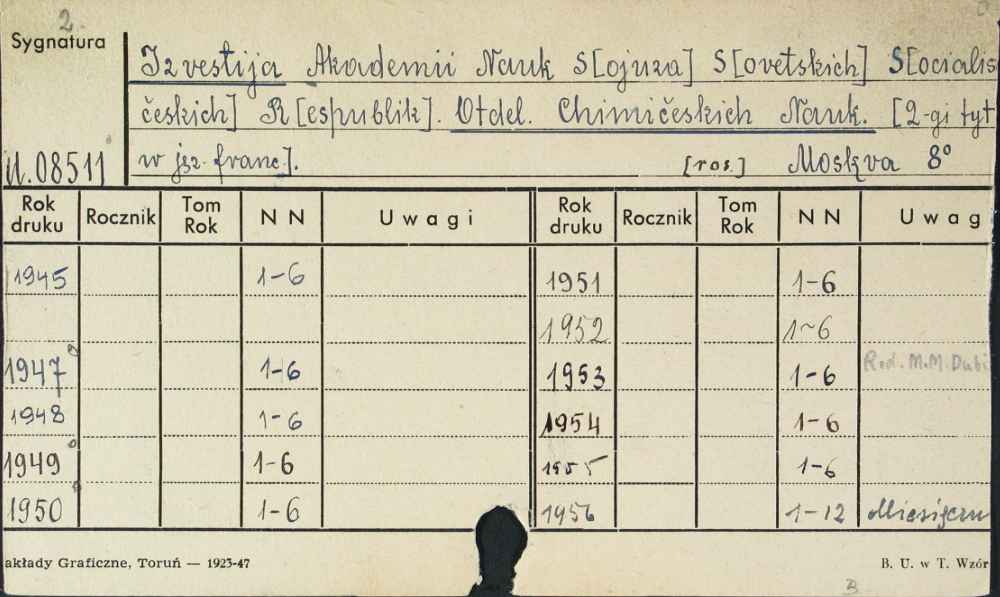 2.
Sygnatura
Izvestija Akademii Nauk S[ojuza] S[ovetskich] S[ocialis
českich] R[espublik]. Otdel. Chimičeskich Nauk. [2-gi tyt
w jęz. franc.].
[ros.] Moskva 8°
U.08511
Rok druku Rocznik Tom Rok N N Uwagi Rok druku Rocznik Tom Rok N N Uwag
1945 1-6 1951 1-6
1952 1-6
1947 1-6 1953 1-6 Red. M.M. Dubi
1948 1-6 1954 1-6
1949 1-6 1955 1-6
1950 1-6 1956 1-12 Miesięczn
akłady Graficzne, Toruń — 1923-47
B. U. w T. Wzór
B